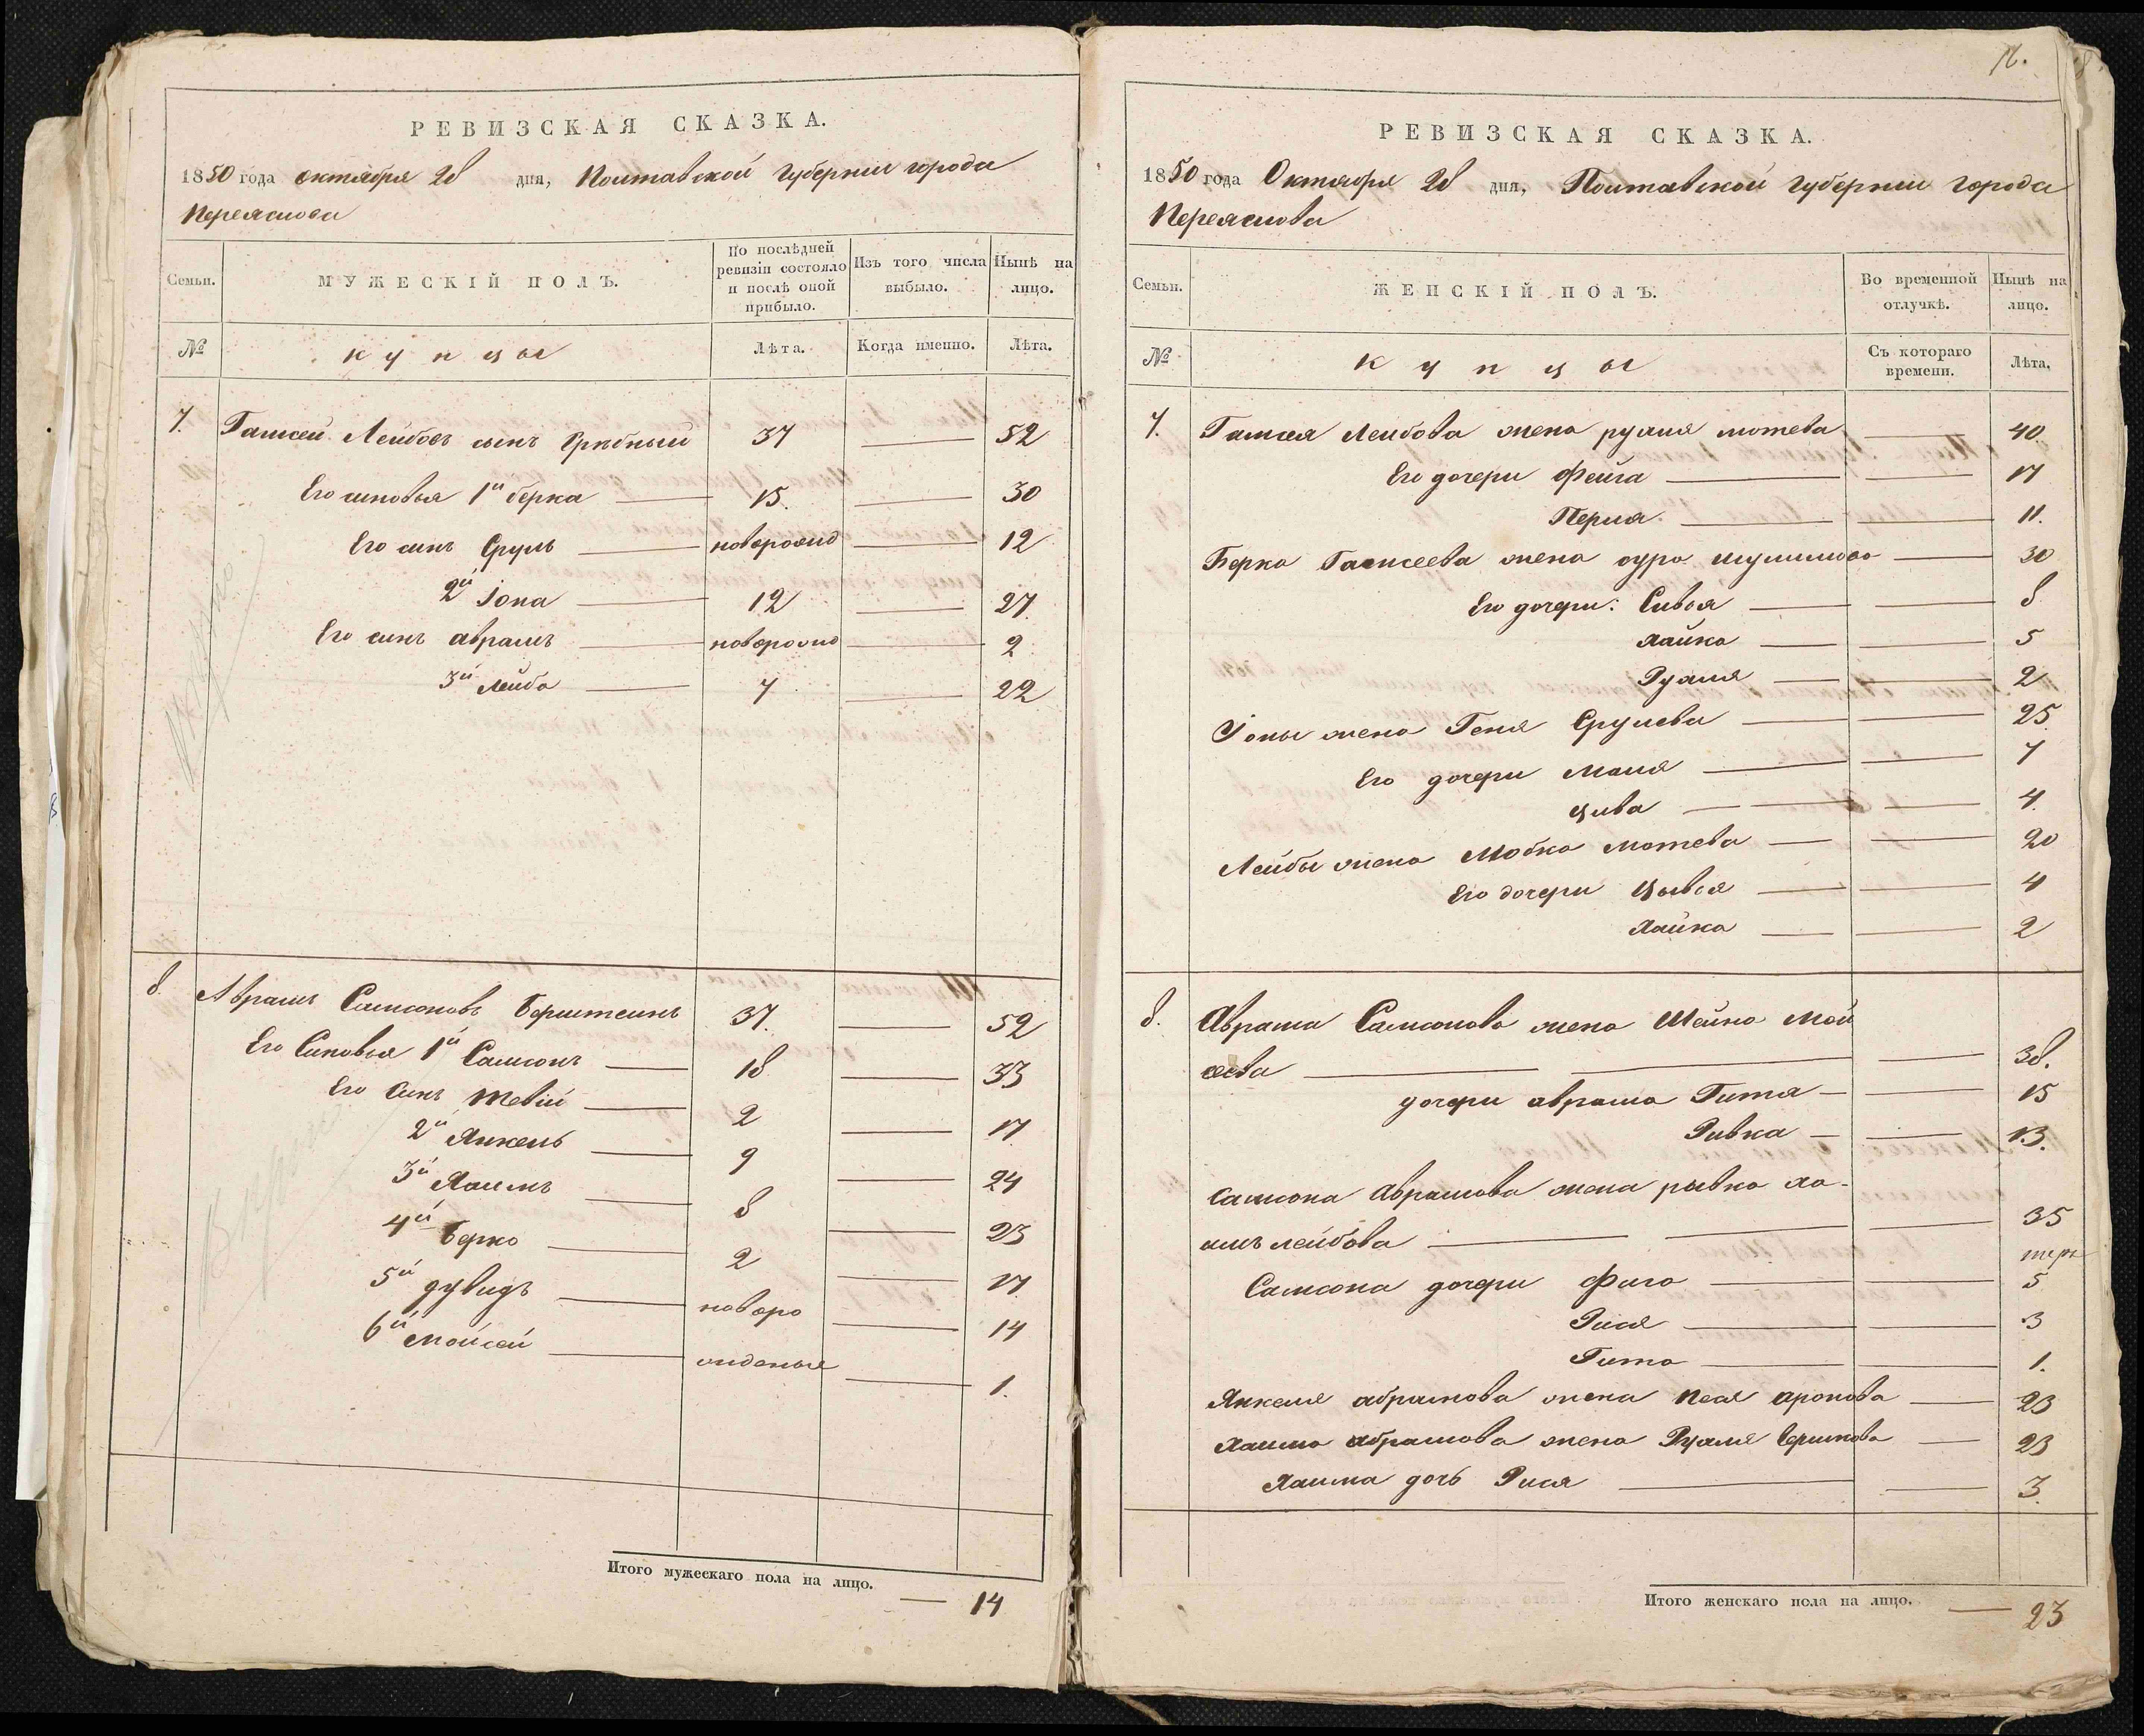 РЕВИЗСКАЯ СКАЗКА.
1850 года октября 28 дня, Полтавской Губернии города
Переяслова
Семьи.
МУЖЕСКІЙ ПОЛЪ.
По послѣдней ревизіи состояло и послѣ оной прибыло.
Изъ того числа выбыло.
Нынѣ на лицо.
№
купцы
Лѣта.
Когда именно.
Лѣта.
7. Лейбовъ сынъ 37 — 52
Его сыновья 1й Берка — 15. — 30
Его сынъ Сруль — новорожд — 12
2й Іона — 12 — 27
Его сынъ Аврамъ — новорожд — 2
3й Лейба — 7 — 22
8. Аврамъ Самсоновъ Берштейнъ 37. — 52
Его Сыновья 1й Самсонъ — 18 — 33
Его Сынъ Тевій — 2 — 17
2й Янкель — 9 — 24
3й Хаимъ — 8 — 23
4й Берко — 2 — 17
5й Дувидъ — новоро — 14
6й Мойсей — жденые — 1.
Итого мужескаго пола на лицо. — 14
РЕВИЗСКАЯ СКАЗКА.
1850 года Октября 28 дня, Полтавской губернии города
Переяслова
Семьи.
ЖЕНСКІЙ ПОЛЪ.
Во временной отлучкѣ.
Нынѣ на лицо.
№
купцы
Съ котораго времени.
Лѣта.
7. Лейбова жена Рухля Мотева — 40
Его дочери Фейга — — 17
Перля — — 11.
Берка жена Сура — 30
Его дочери: Сивья — — 8
Хайка — — 5
Рухля — — 2
Іоны жена Геня Срулева — — 25
Его дочери Маля — — 7
Цива — — 4.
Лейбы жена Мотева — — 20
Его дочери Цывья — — 4
Хайка — — 2
8. Аврама Самсонова жена Шейна Мой
сеева — — 38.
дочери Аврама Гитля — — 15
Ривка — — 13.
Самсона Аврамова жена Рывка Ха-
имъ Лейбова — — 35
Самсона дочери Фига — — 5
Рися — — 3
Гита — — 1.
Янкеля Абрамова жена Песя Аронова — 23
Хаима Абрамова жена Рухля — 23
Хаима дочь Рися — — 3.
Итого женскаго пола на лицо. — 23